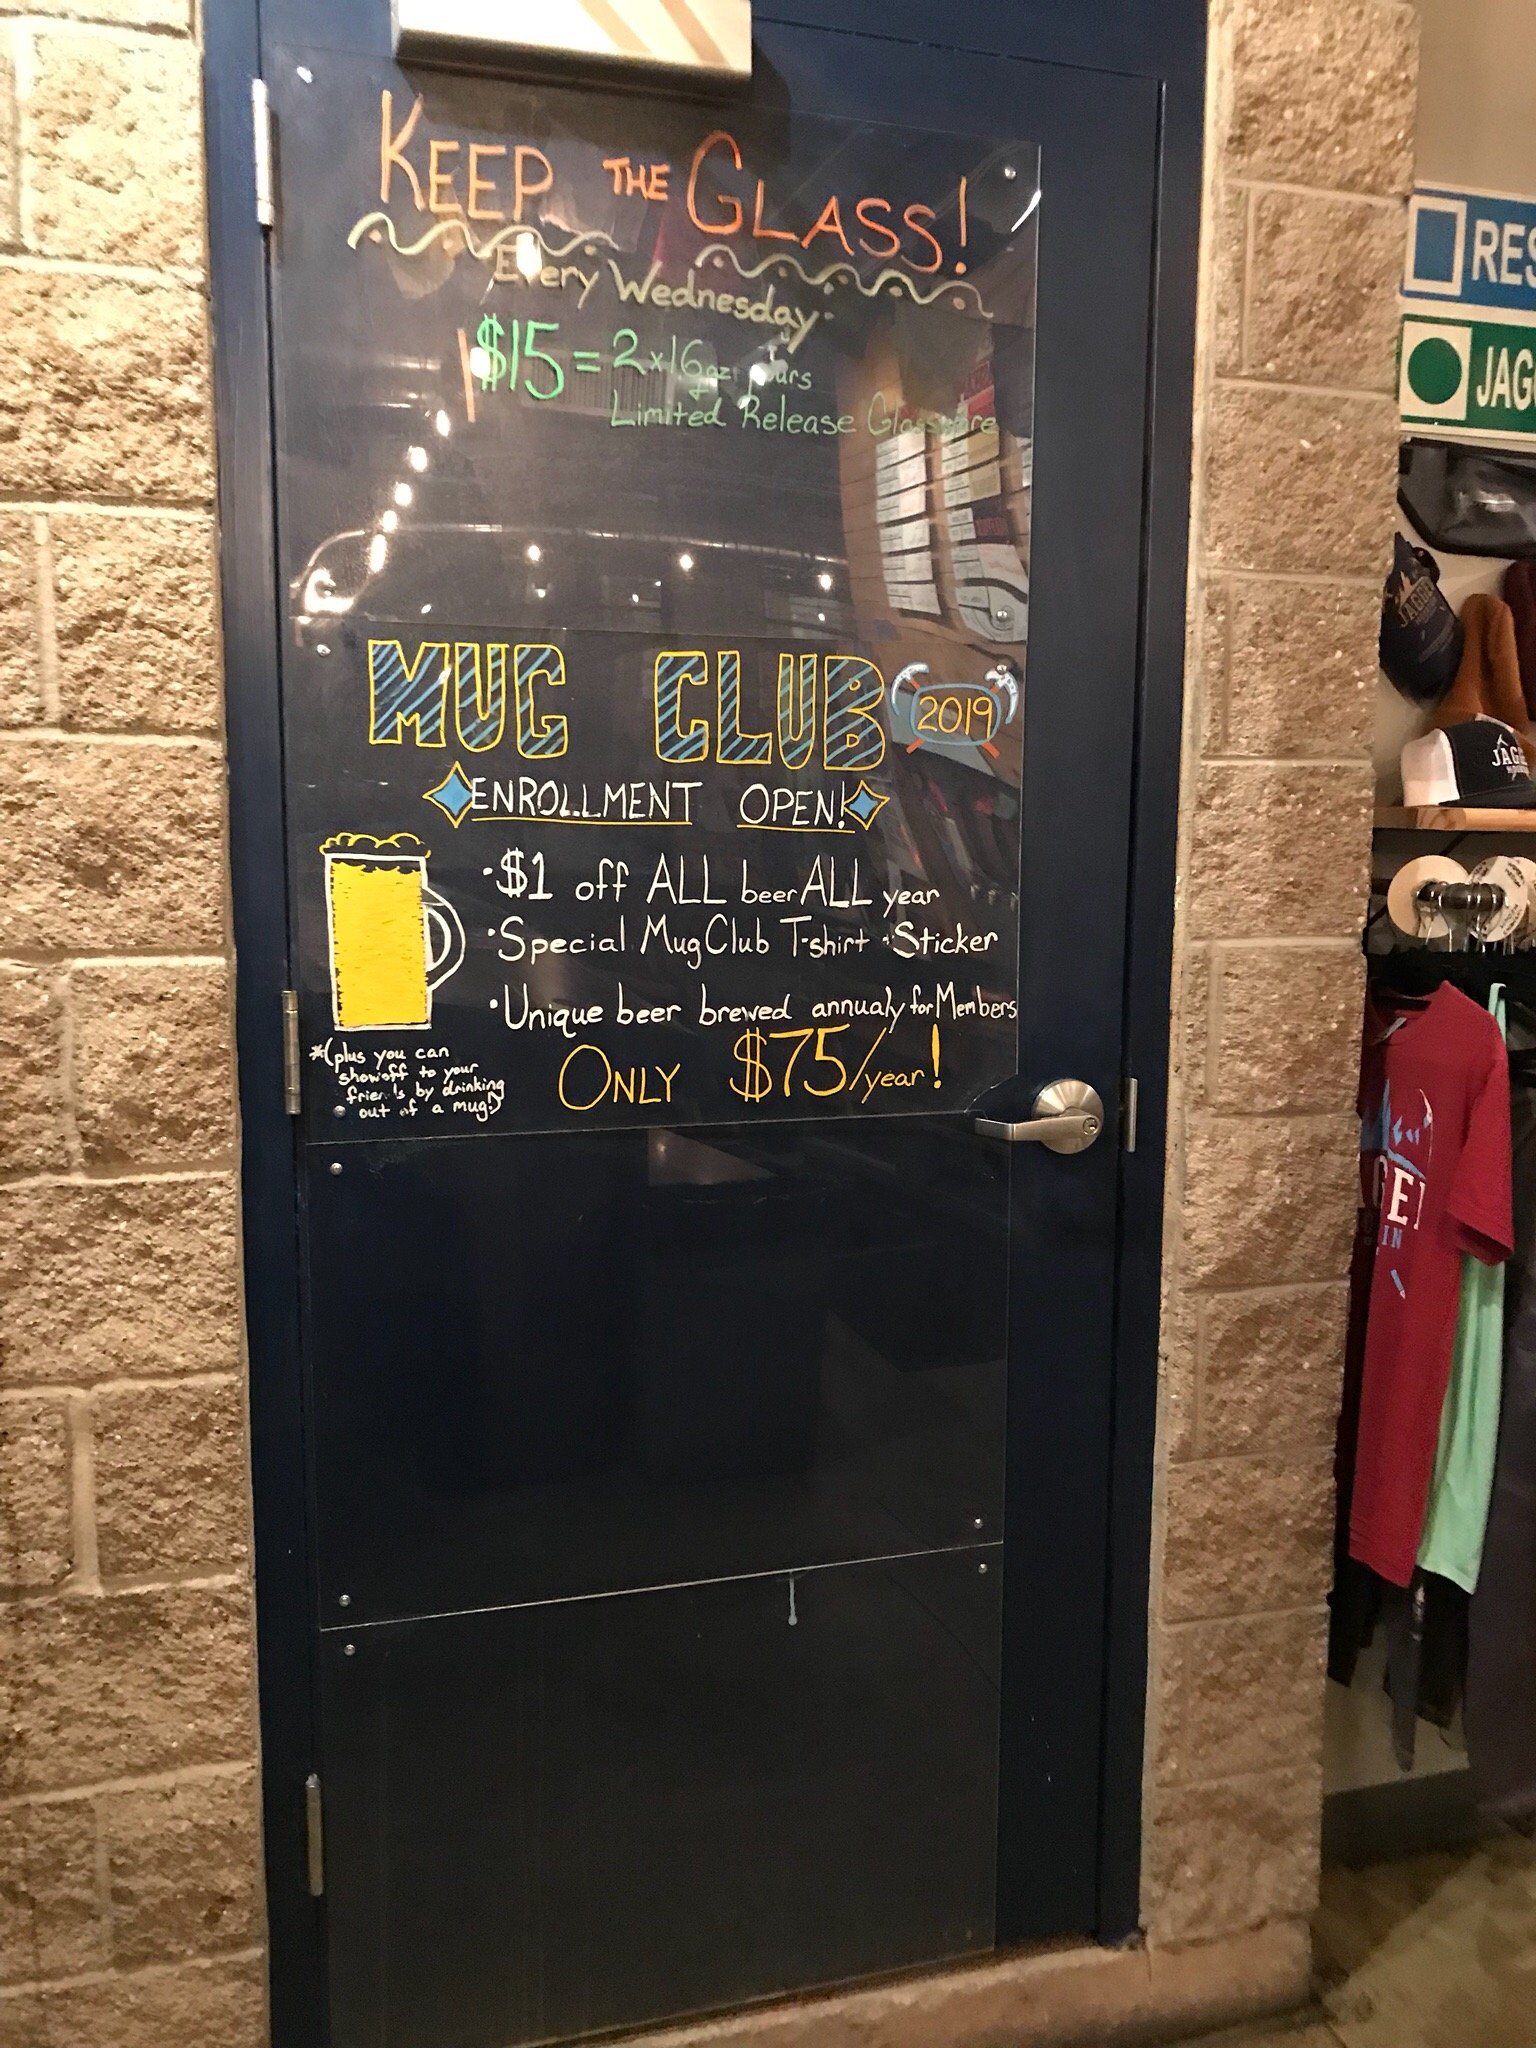 KEEP THE GLASS!
Every Wednesday
$15 = 2x16oz pours
Limited Release Glassware
MUG CLUB 2019
ENROLLMENT OPEN!
• $1 off ALL beer ALL year
• Special Mug Club T-shirt + Sticker
• Unique beer brewed annualy for Members
ONLY $75/year!
*(plus you can
showoff to your
friends by drinking
out of a mug:)
RES
JAG
JAGG
JAGG
GE
IN